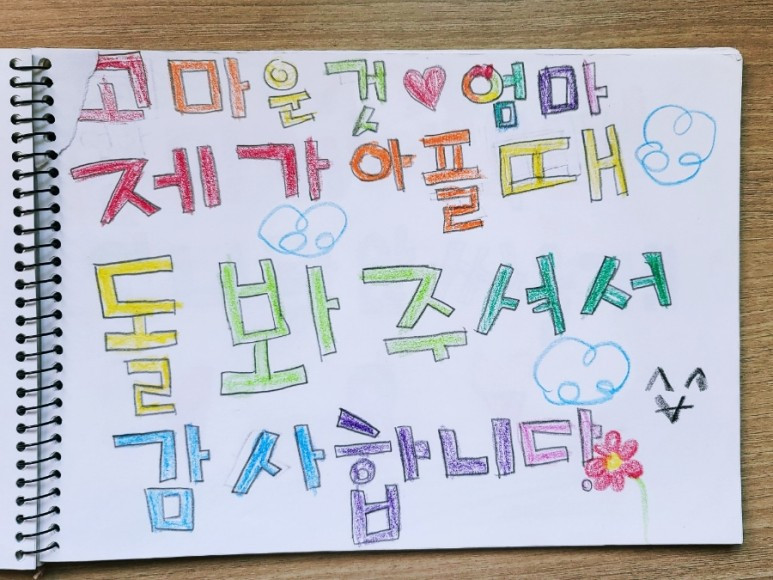 고마운 것 ♥ 엄마
제가 아플 때
돌봐주셔서
감사합니다.